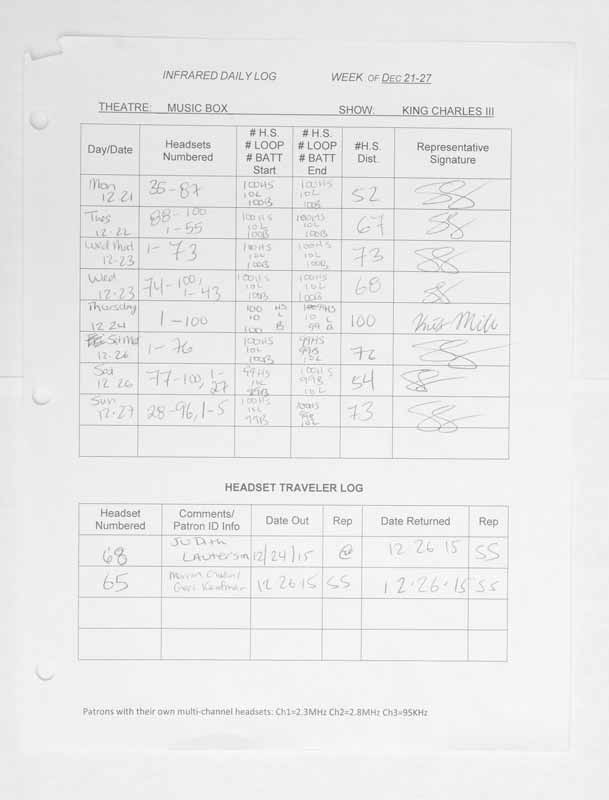 INFRARED DAILY LOG WEEK OF DEC 21-27
THEATRE: MUSIC BOX SHOW: KING CHARLES III
Day/Date Headsets Numbered # H.S. # LOOP # BATT Start # H.S. # LOOP # BATT End #H.S. Dist. Representative Signature
Mon 12.21 35-87 100HS 10L 100B 100HS 10L 100B 52
Tues 12-22 88-100 1-55 100HS 10L 100B 100HS 10L 100B 67
Wed Mat 12-23 1-73 100HS 10L 100B 100HS 10L 100B 73
Wed 12-23 74-100, 1-43 100HS 10L 100B 100HS 10L 100B 68
Thursday 12 24 1-100 100 HS 10 L 100 B HS 10 L 99 B 100
Sat Mat 12.26 1-76 100HS 10L 100B 99HS 99B 10L 72
Sat 12 26 77-100, 1-27 99HS 10L 99B 100HS 99B 10L 54
Sun 12.27 28-96, 1-5 100HS 10L 99B 100HS 99B 10L 73
HEADSET TRAVELER LOG
Headset Numbered Comments/ Patron ID Info Date Out Rep Date Returned Rep
68 Judith 12/24/15 @ 12 26 15 SS
65 12 26 15 SS 12-26-15 SS
Patrons with their own multi-channel headsets: Ch1=2.3MHz Ch2=2.8MHz Ch3=95KHz